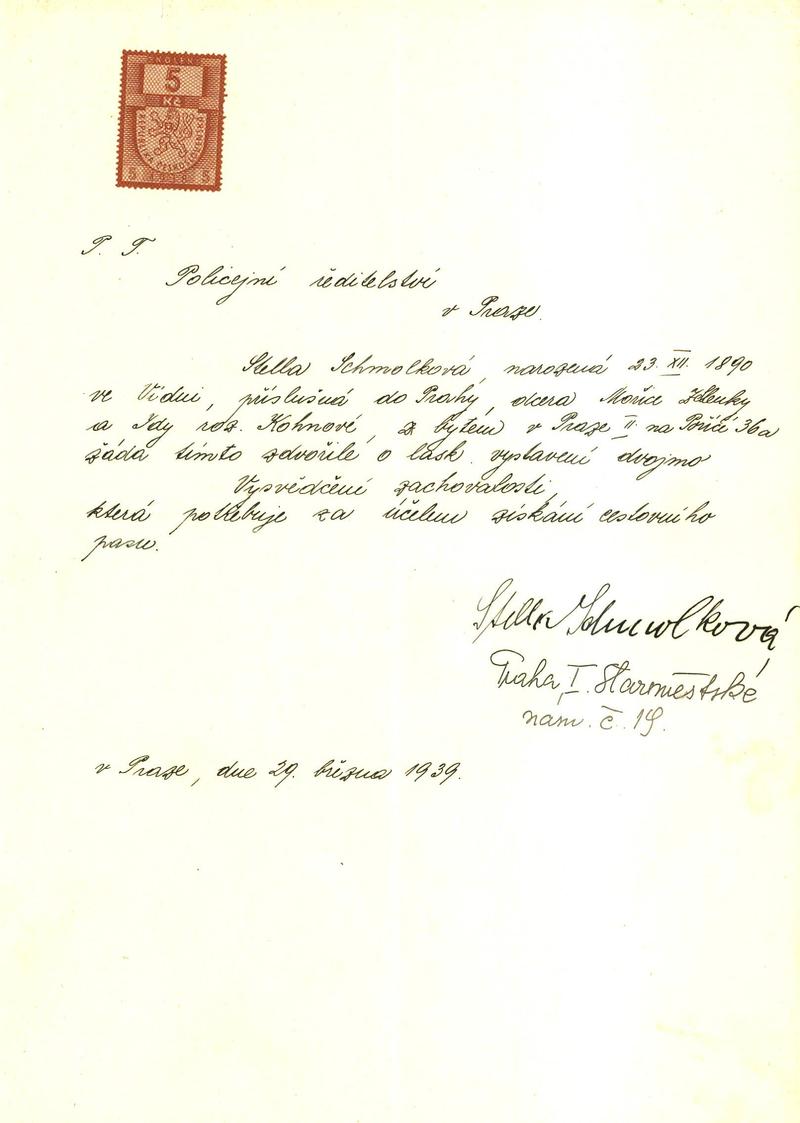 KOLEK
5
Kč
REPUBLIKA ČESKOSLOVENSKÁ
5 1938 5
P. T.
Policejní ředitelství
v Praze.
Stella Schmolková, narozená 23. XII. 1890
ve Vídni, příslušná do Prahy, dcera Mořice Zdenky
a Idy roz. Kohnové, z bytem v Praze II. na Poříčí 36a
žádá tímto zdvořile o lask. vystavení dvojmo
Vysvědčení zachovalosti,
která potřebuje za účelem získání cestovního
pasu.
Stella Schmolková
Praha I. Staroměstské
nám. č. 19.
v Praze, dne 29. března 1939.